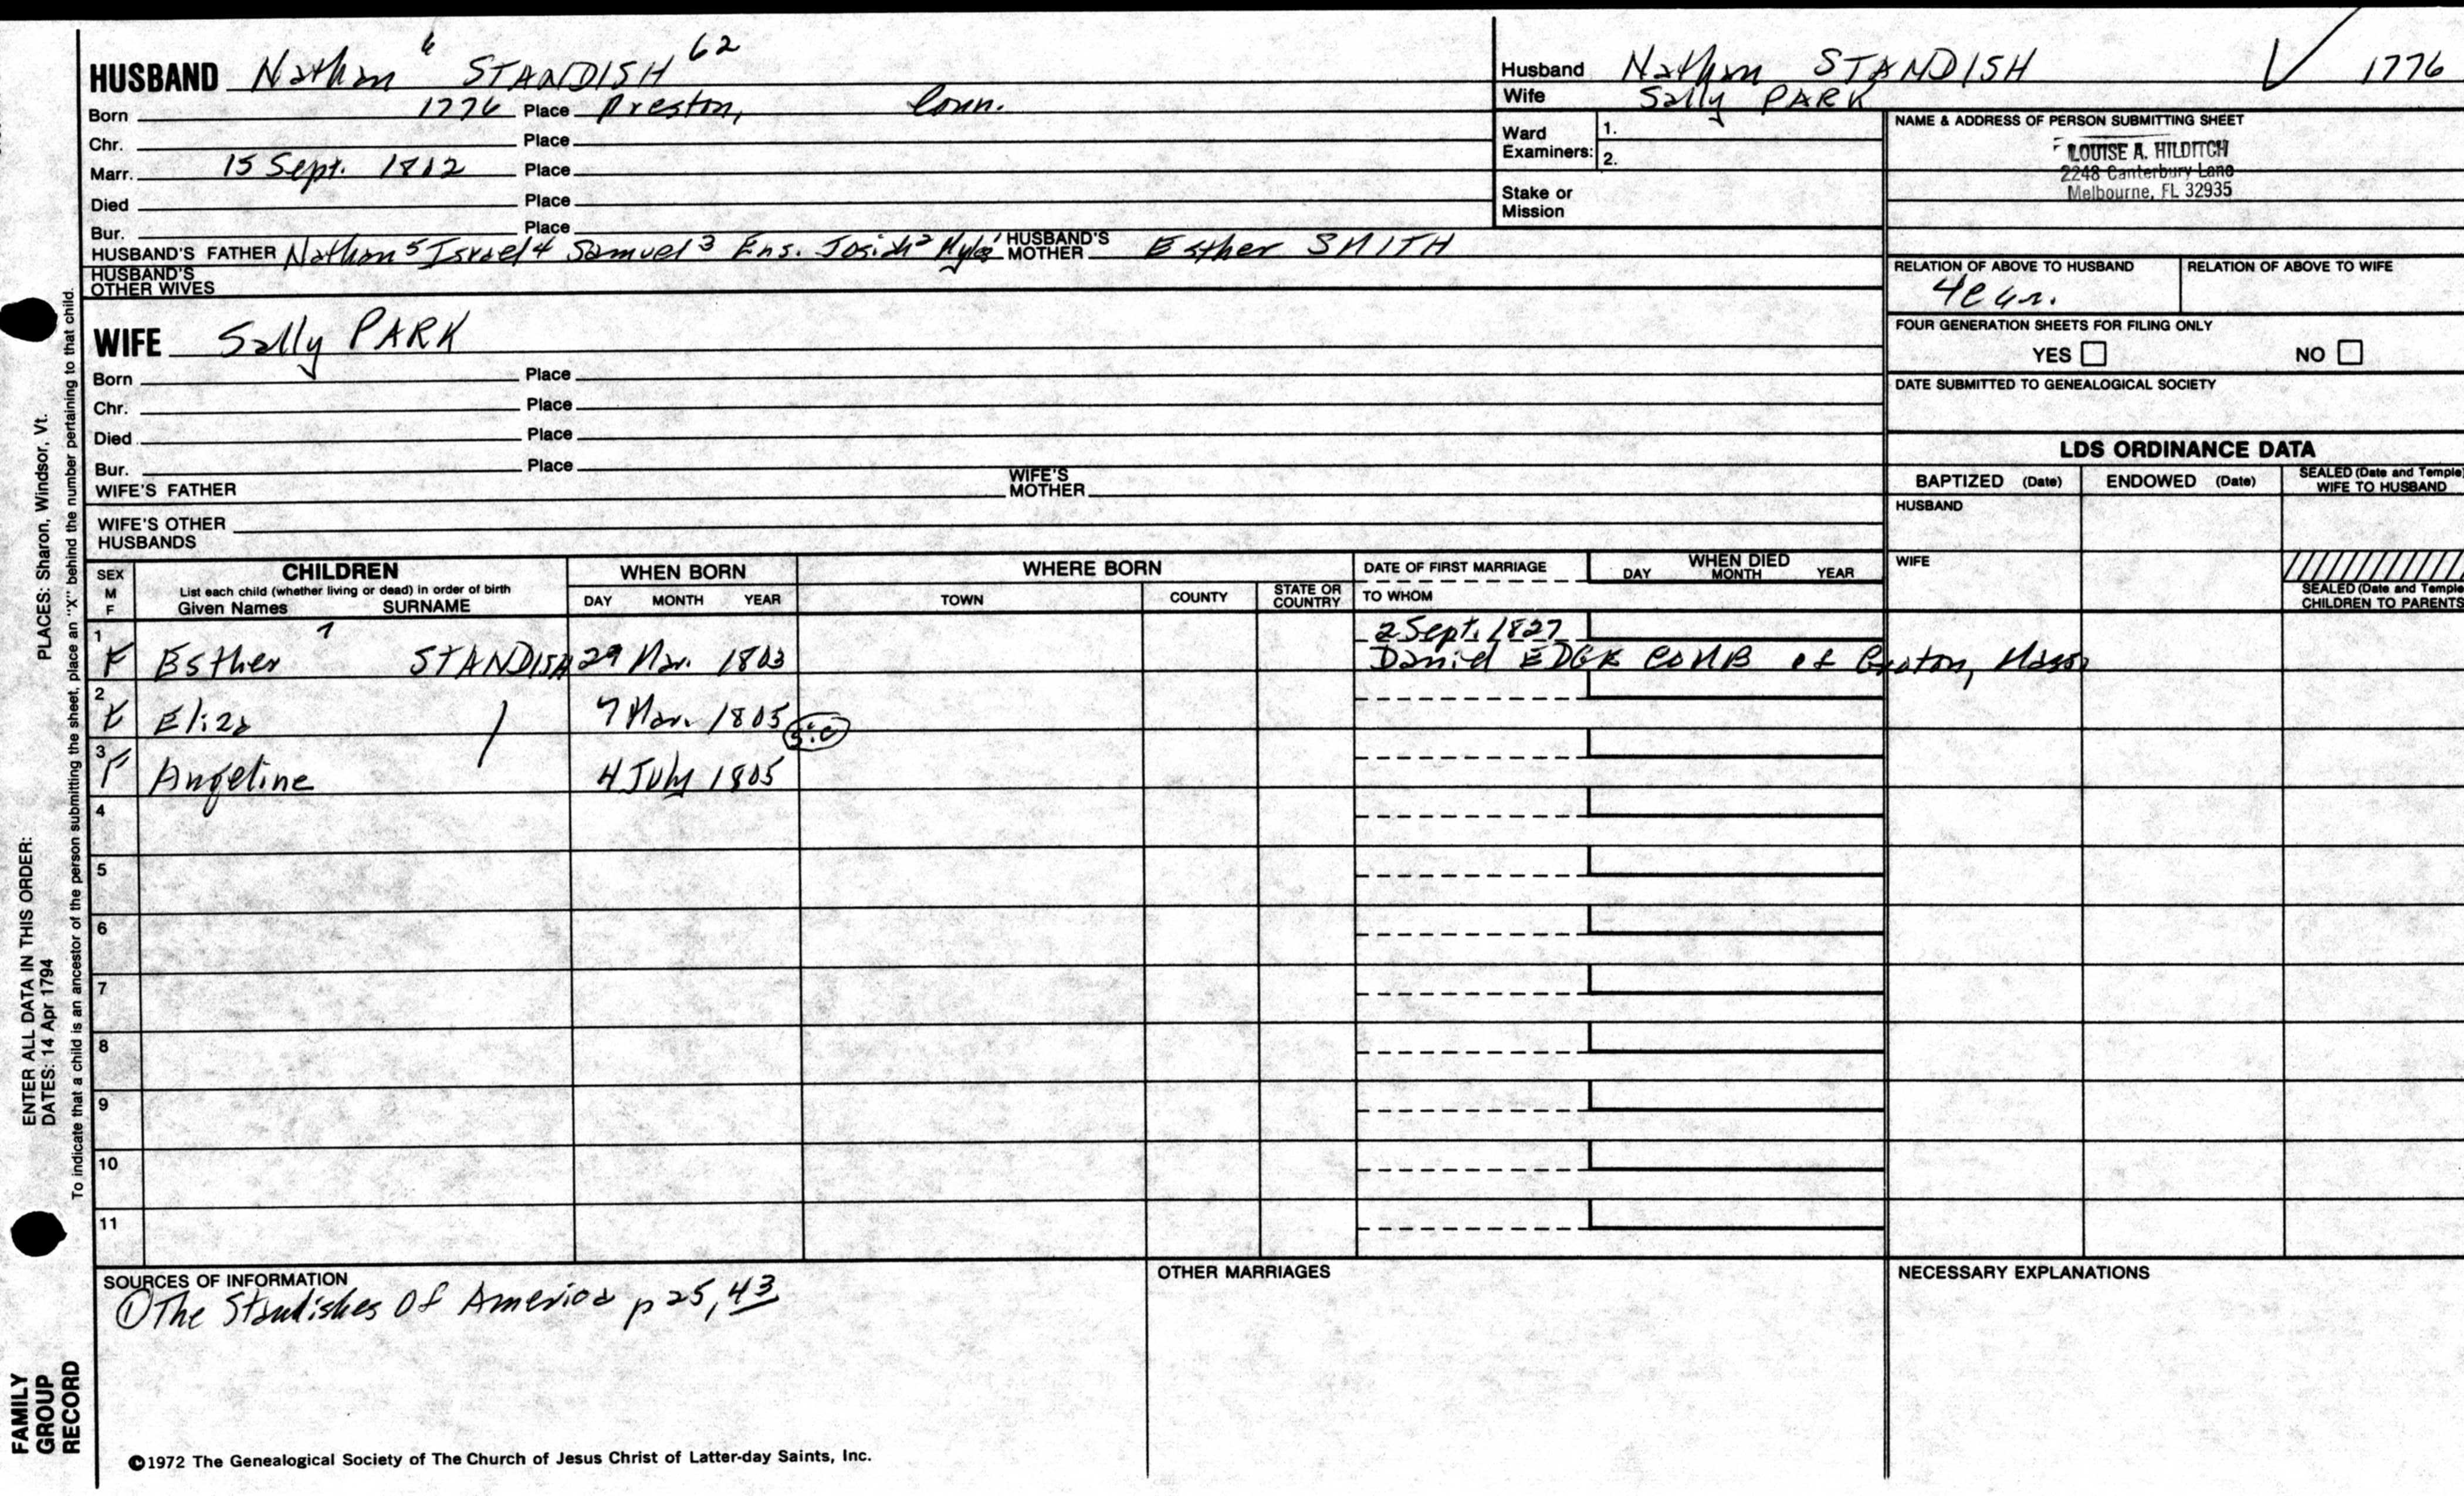 HUSBAND Nathan 6 STANDISH 62
Born 1776 Place Preston, Conn.
Chr. Place
Marr. 15 Sept. 1802 Place
Died Place
Bur. Place
HUSBAND'S FATHER Nathan 5 Israel 4 Samuel 3 Ens. Josiah 2 Myles 1 HUSBAND'S MOTHER Esther SMITH
HUSBAND'S OTHER WIVES
WIFE Sally PARK
Born Place
Chr. Place
Died Place
Bur. Place
WIFE'S FATHER WIFE'S MOTHER
WIFE'S OTHER HUSBANDS
Husband Nathan STANDISH 1776
Wife Sally PARK
Ward Examiners: 1.
2.
Stake or Mission
NAME & ADDRESS OF PERSON SUBMITTING SHEET
LOUISE A. HILDITCH
2248 Canterbury Lane
Melbourne, FL 32935
RELATION OF ABOVE TO HUSBAND RELATION OF ABOVE TO WIFE
FOUR GENERATION SHEETS FOR FILING ONLY
YES NO
DATE SUBMITTED TO GENEALOGICAL SOCIETY
LDS ORDINANCE DATA
BAPTIZED (Date) ENDOWED (Date) SEALED (Date and Temple) WIFE TO HUSBAND
HUSBAND
WIFE
SEALED (Date and Temple) CHILDREN TO PARENTS
SEX M F CHILDREN WHEN BORN WHERE BORN DATE OF FIRST MARRIAGE WHEN DIED
List each child (whether living or dead) in order of birth
Given Names SURNAME DAY MONTH YEAR TOWN COUNTY STATE OR COUNTRY TO WHOM DAY MONTH YEAR
1 F Esther 7 STANDISH 29 Mar. 1803 2 Sept. 1827
Daniel EDGECOMB of Groton, Mass
2 F Eliza 7 Mar. 1805 sic
3 F Angeline 4 July 1805
4
5
6
7
8
9
10
11
SOURCES OF INFORMATION
① The Standishes Of America p 25, 43
OTHER MARRIAGES
NECESSARY EXPLANATIONS
©1972 The Genealogical Society of The Church of Jesus Christ of Latter-day Saints, Inc.
FAMILY GROUP RECORD
ENTER ALL DATA IN THIS ORDER:
DATES: 14 Apr 1794
PLACES: Sharon, Windsor, Vt.
To indicate that a child is an ancestor of the person submitting the sheet, place an "X" behind the number pertaining to that child.